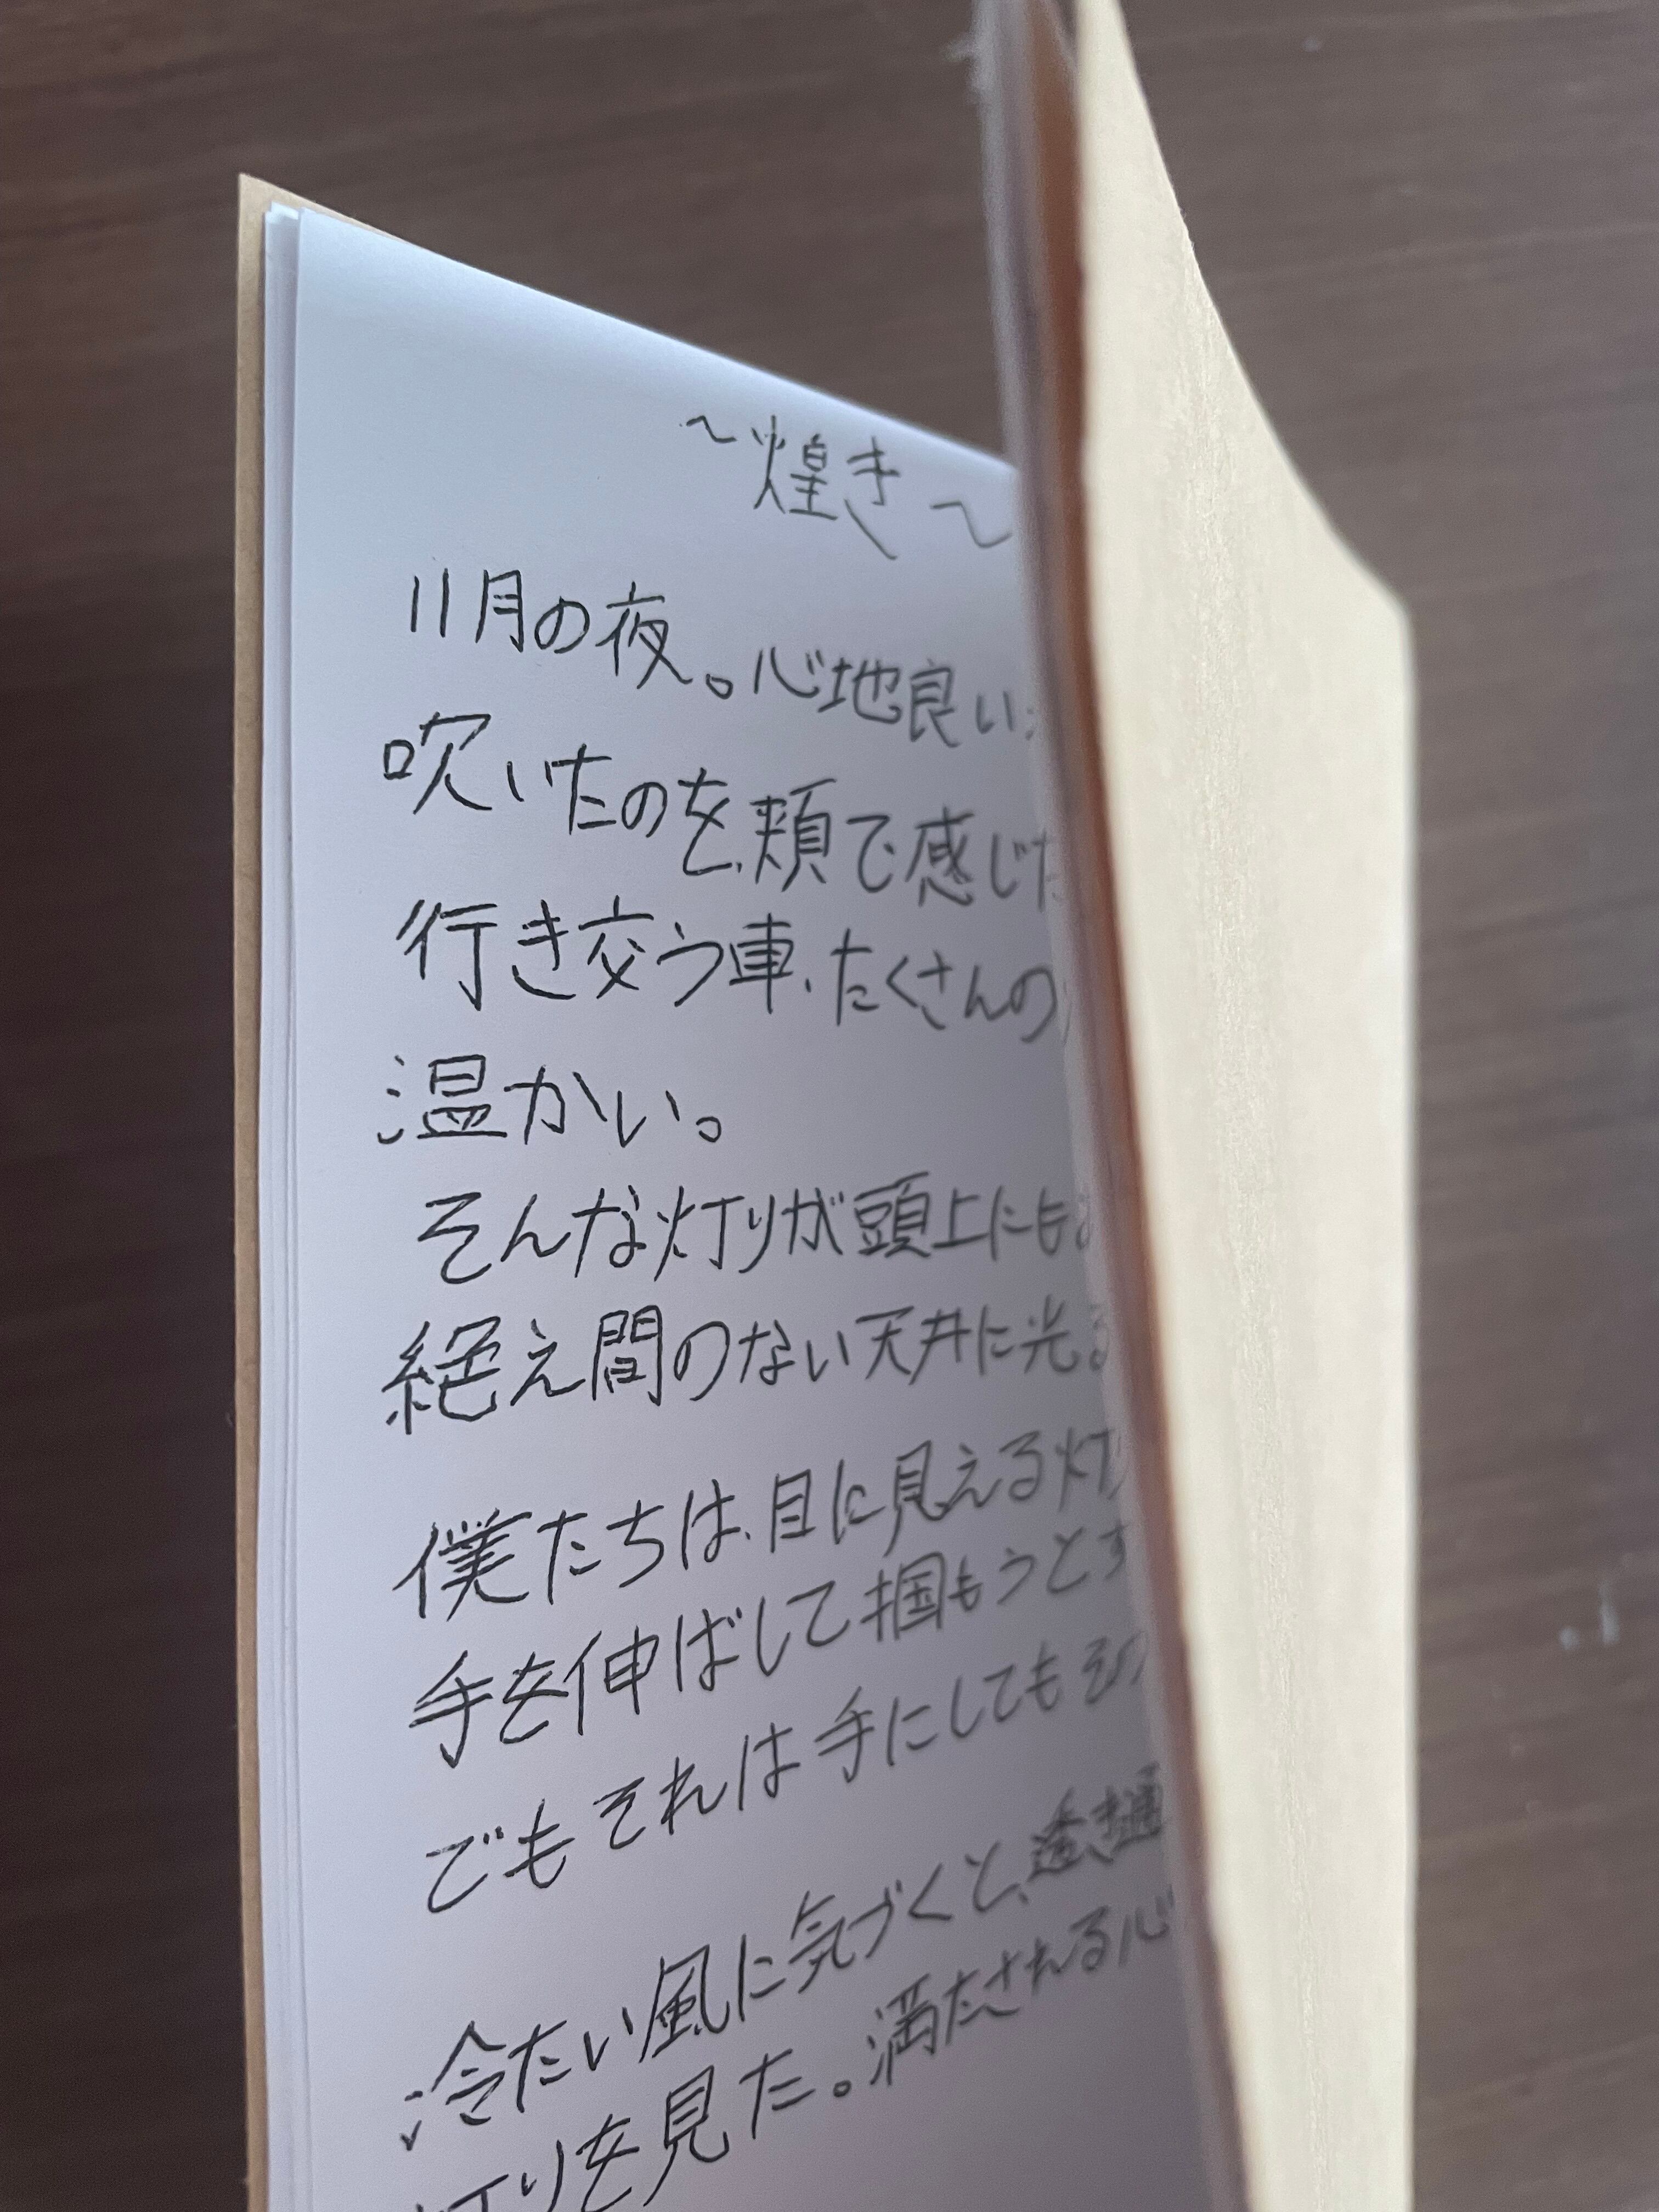 〜煌き〜
11月の夜。心地良い
吹いたのを、頬で感じた
行き交う車、たくさんの
温かい。
そんな灯りが頭上にも
絶え間のない天井に光る
僕たちは、目に見える灯
手を伸ばして掴もうとす
でもそれは手にしてもその
冷たい風に気づくと、透き通
灯りを見た。満たされる心